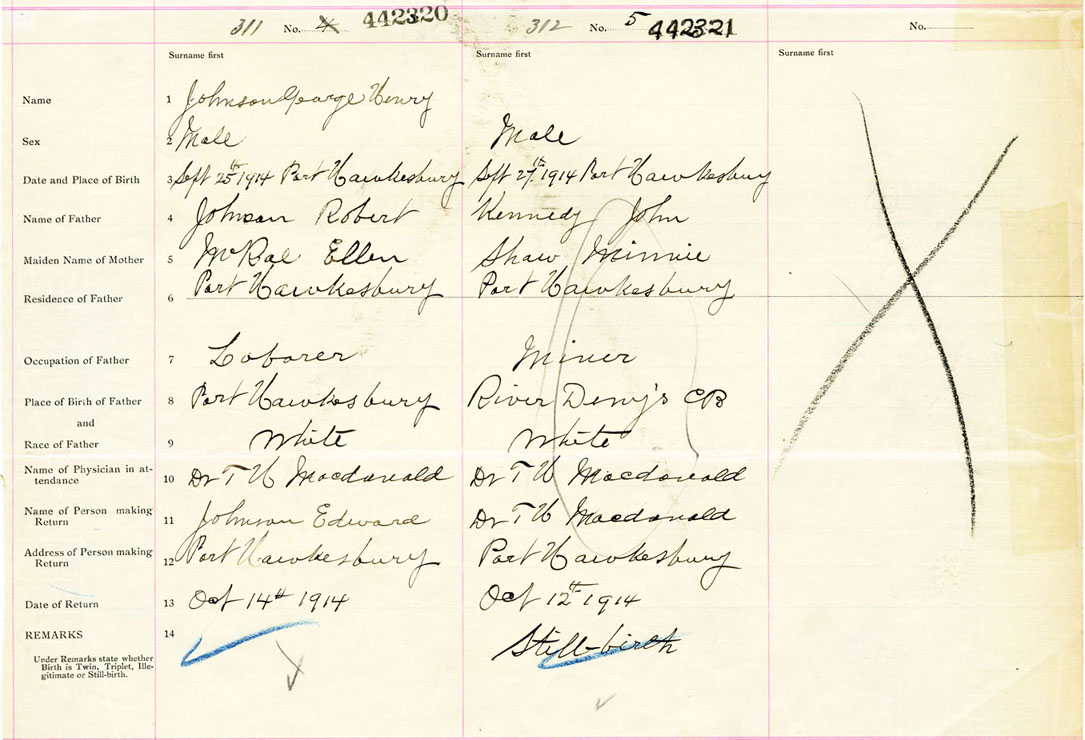 311 No. 4 442320 312 No. 5 442321 No.
Surname first Surname first Surname first
Name 1 Johnson George Henry
Sex 2 Male Male
Date and Place of Birth 3 Sept 25th 1914 Port Hawkesbury Sept 27th 1914 Port Hawkesbury
Name of Father 4 Johnson Robert Kennedy John
Maiden Name of Mother 5 McRae Ellen Shaw Minnie
Residence of Father 6 Port Hawkesbury Port Hawkesbury
Occupation of Father 7 Laborer Miner
Place of Birth of Father 8 Port Hawkesbury River Deny's CB
and
Race of Father 9 White White
Name of Physician in at-
tendance 10 Dr T H Macdonald Dr T H Macdonald
Name of Person making
Return 11 Johnson Edward Dr T H Macdonald
Address of Person making
Return 12 Port Hawkesbury Port Hawkesbury
Date of Return 13 Oct 14th 1914 Oct 12th 1914
REMARKS 14 Still-birth
Under Remarks state whether
Birth is Twin, Triplet, Ille-
gitimate or Still-birth.